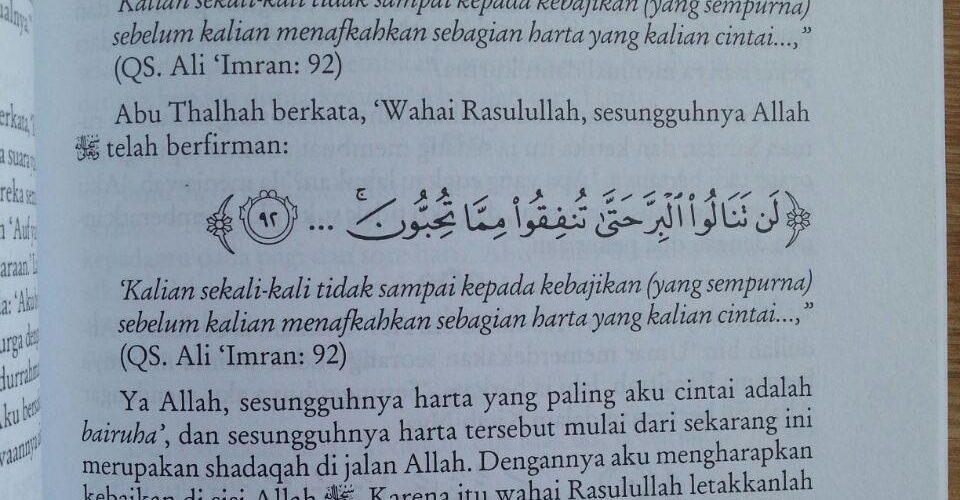 'Kalian sekali-kali tidak sampai kepada kebajikan (yang sempurna)
sebelum kalian menafkahkan sebagian harta yang kalian cintai...,"
(QS. Ali 'Imran: 92)
Abu Thalhah berkata, 'Wahai Rasulullah, sesungguhnya Allah
telah berfirman:
﴿لَن تَنَالُوا۟ ٱلْبِرَّ حَتَّىٰ تُنفِقُوا۟ مِمَّا تُحِبُّونَ ۚ ... ٩٢﴾
'Kalian sekali-kali tidak sampai kepada kebajikan (yang sempurna)
sebelum kalian menafkahkan sebagian harta yang kalian cintai...,"
(QS. Ali 'Imran: 92)
Ya Allah, sesungguhnya harta yang paling aku cintai adalah
bairuha', dan sesungguhnya harta tersebut mulai dari sekarang ini
merupakan shadaqah di jalan Allah. Dengannya aku mengharapkan
kebaikan di sisi Allah ﷻ. Karena itu wahai Rasulullah letakkanlah